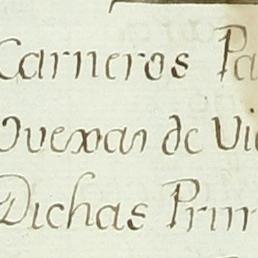 Carneros Pa
Ovexas de Vie
Dichas Prim